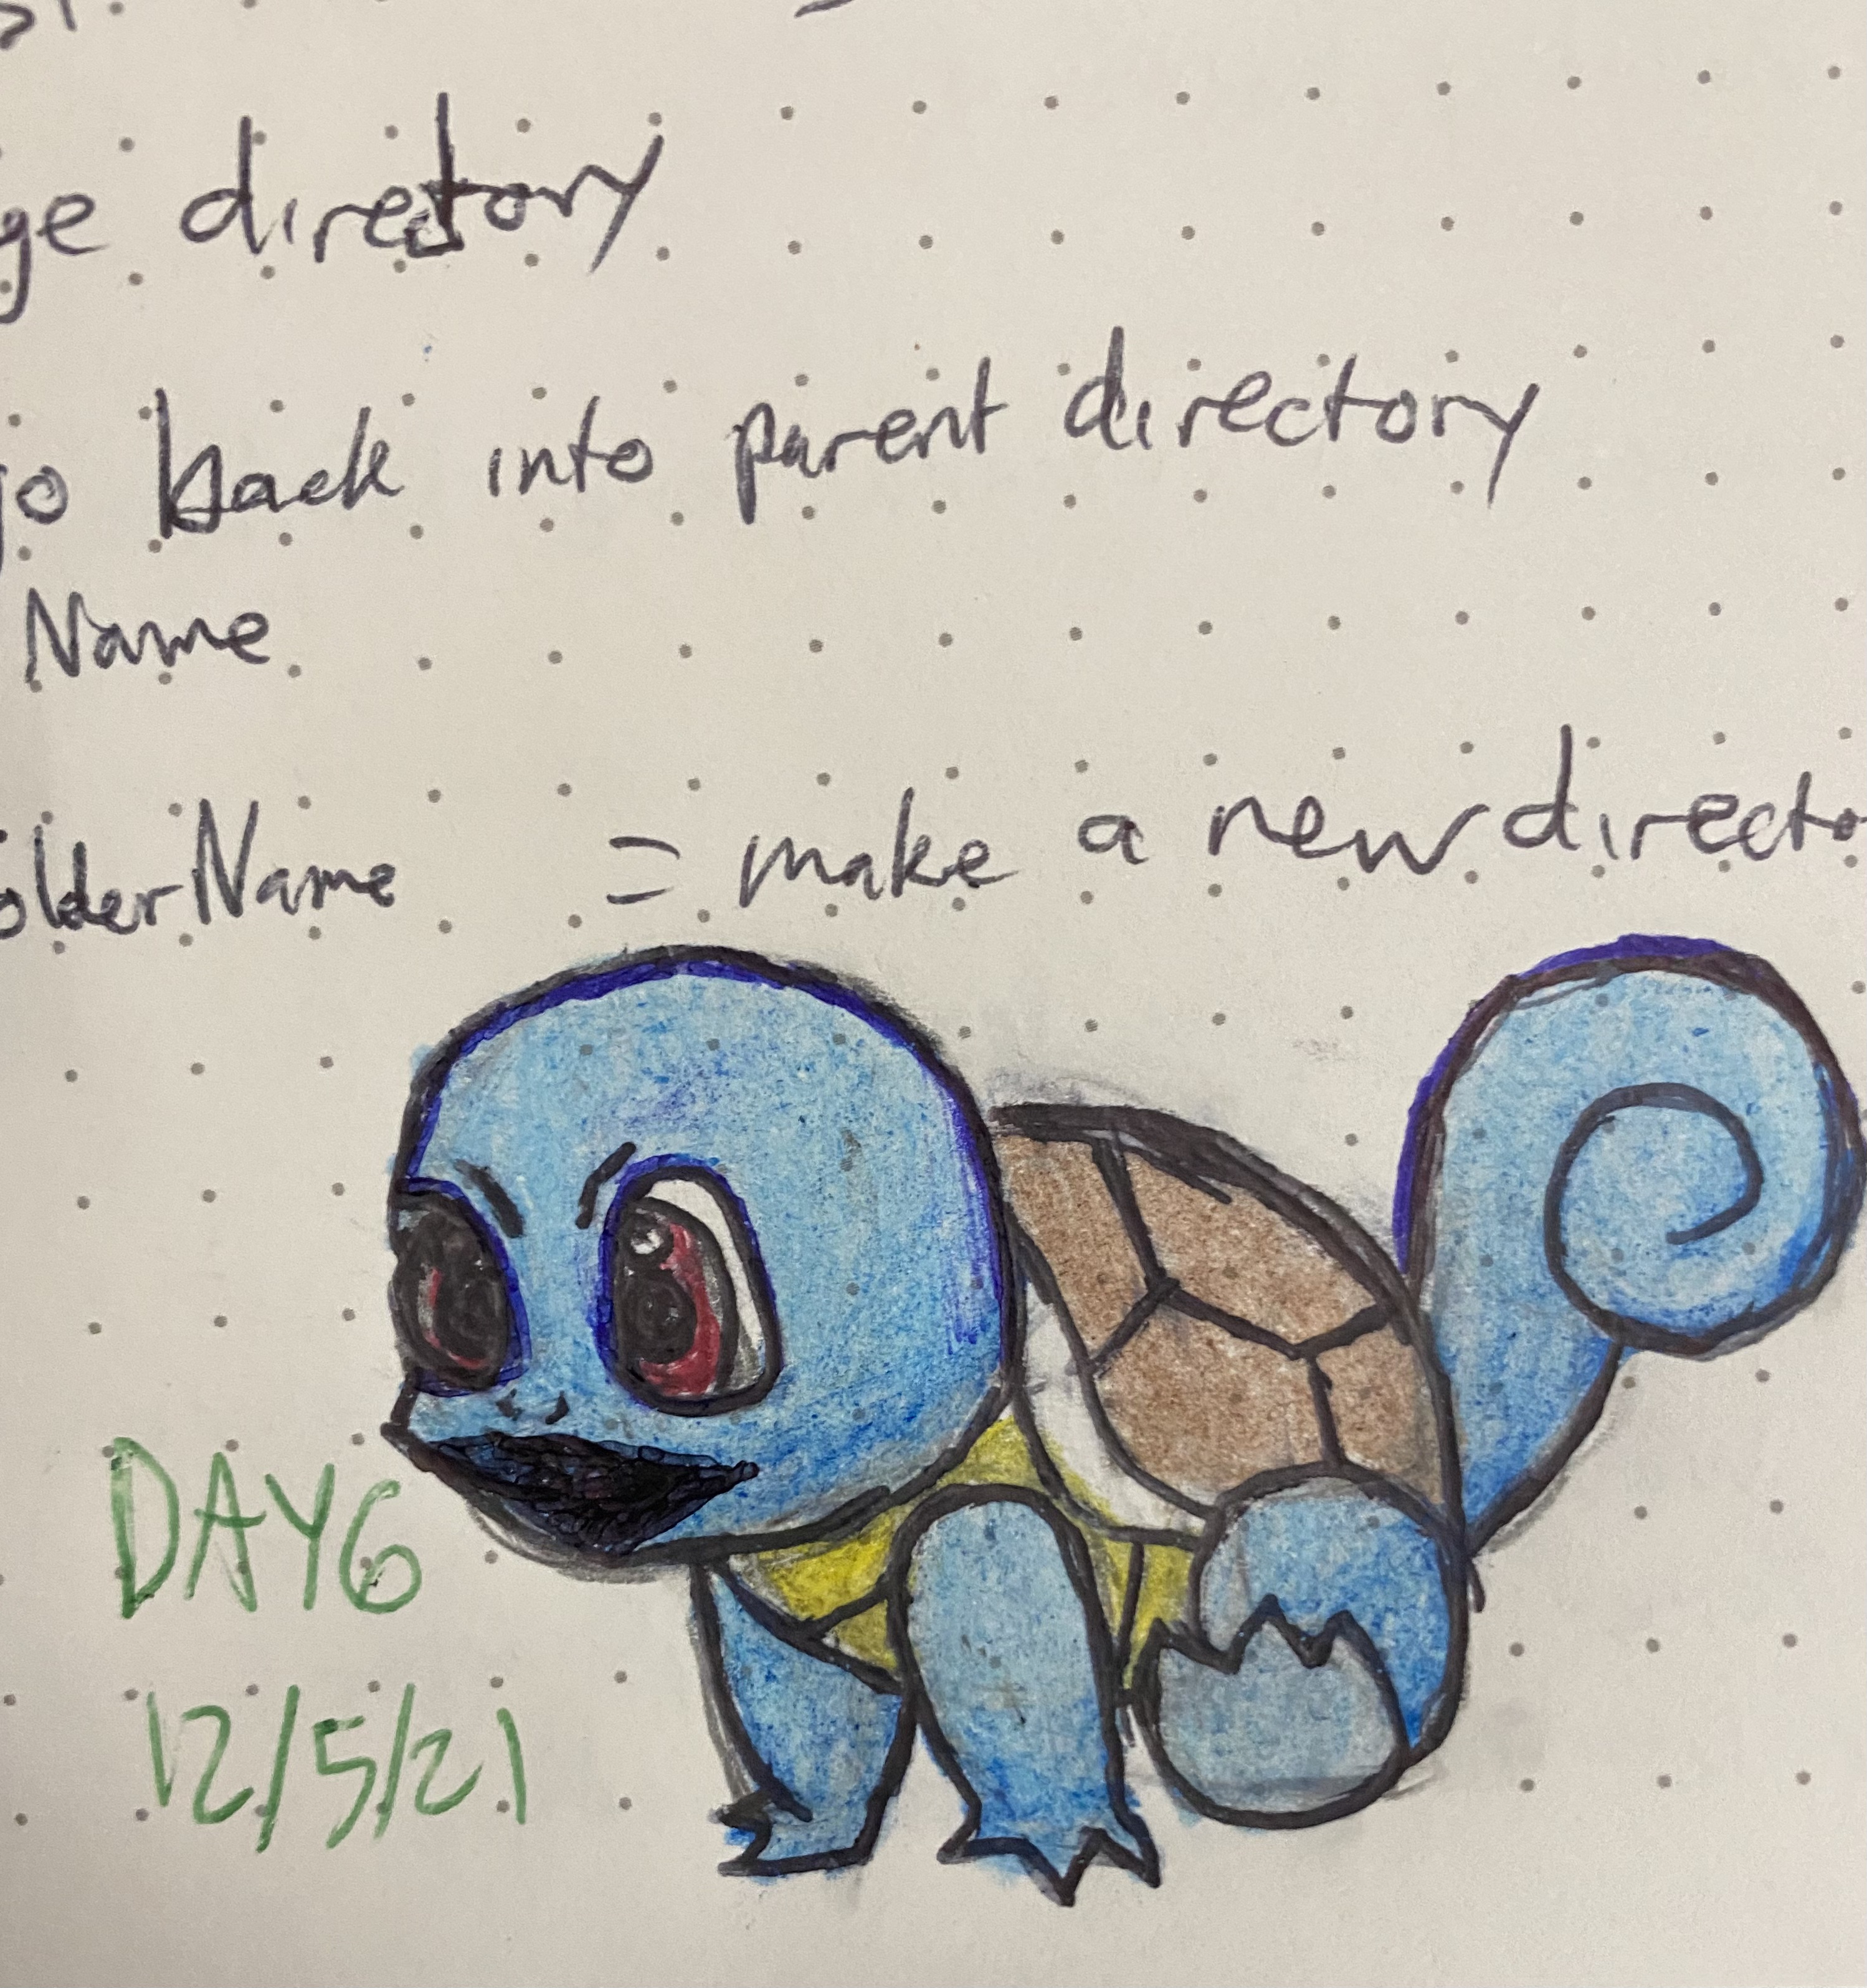 ge directory
go back into parent directory
Name
olderName = make a new directo
DAY6
12/5/21